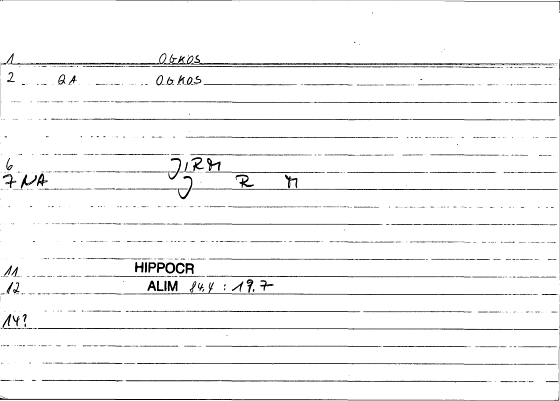 1 OGKOS
2 QA OGKOS
6 JIRM
7 NA J R M
11 HIPPOCR
12 ALIM 84,4 : 19,7
14?